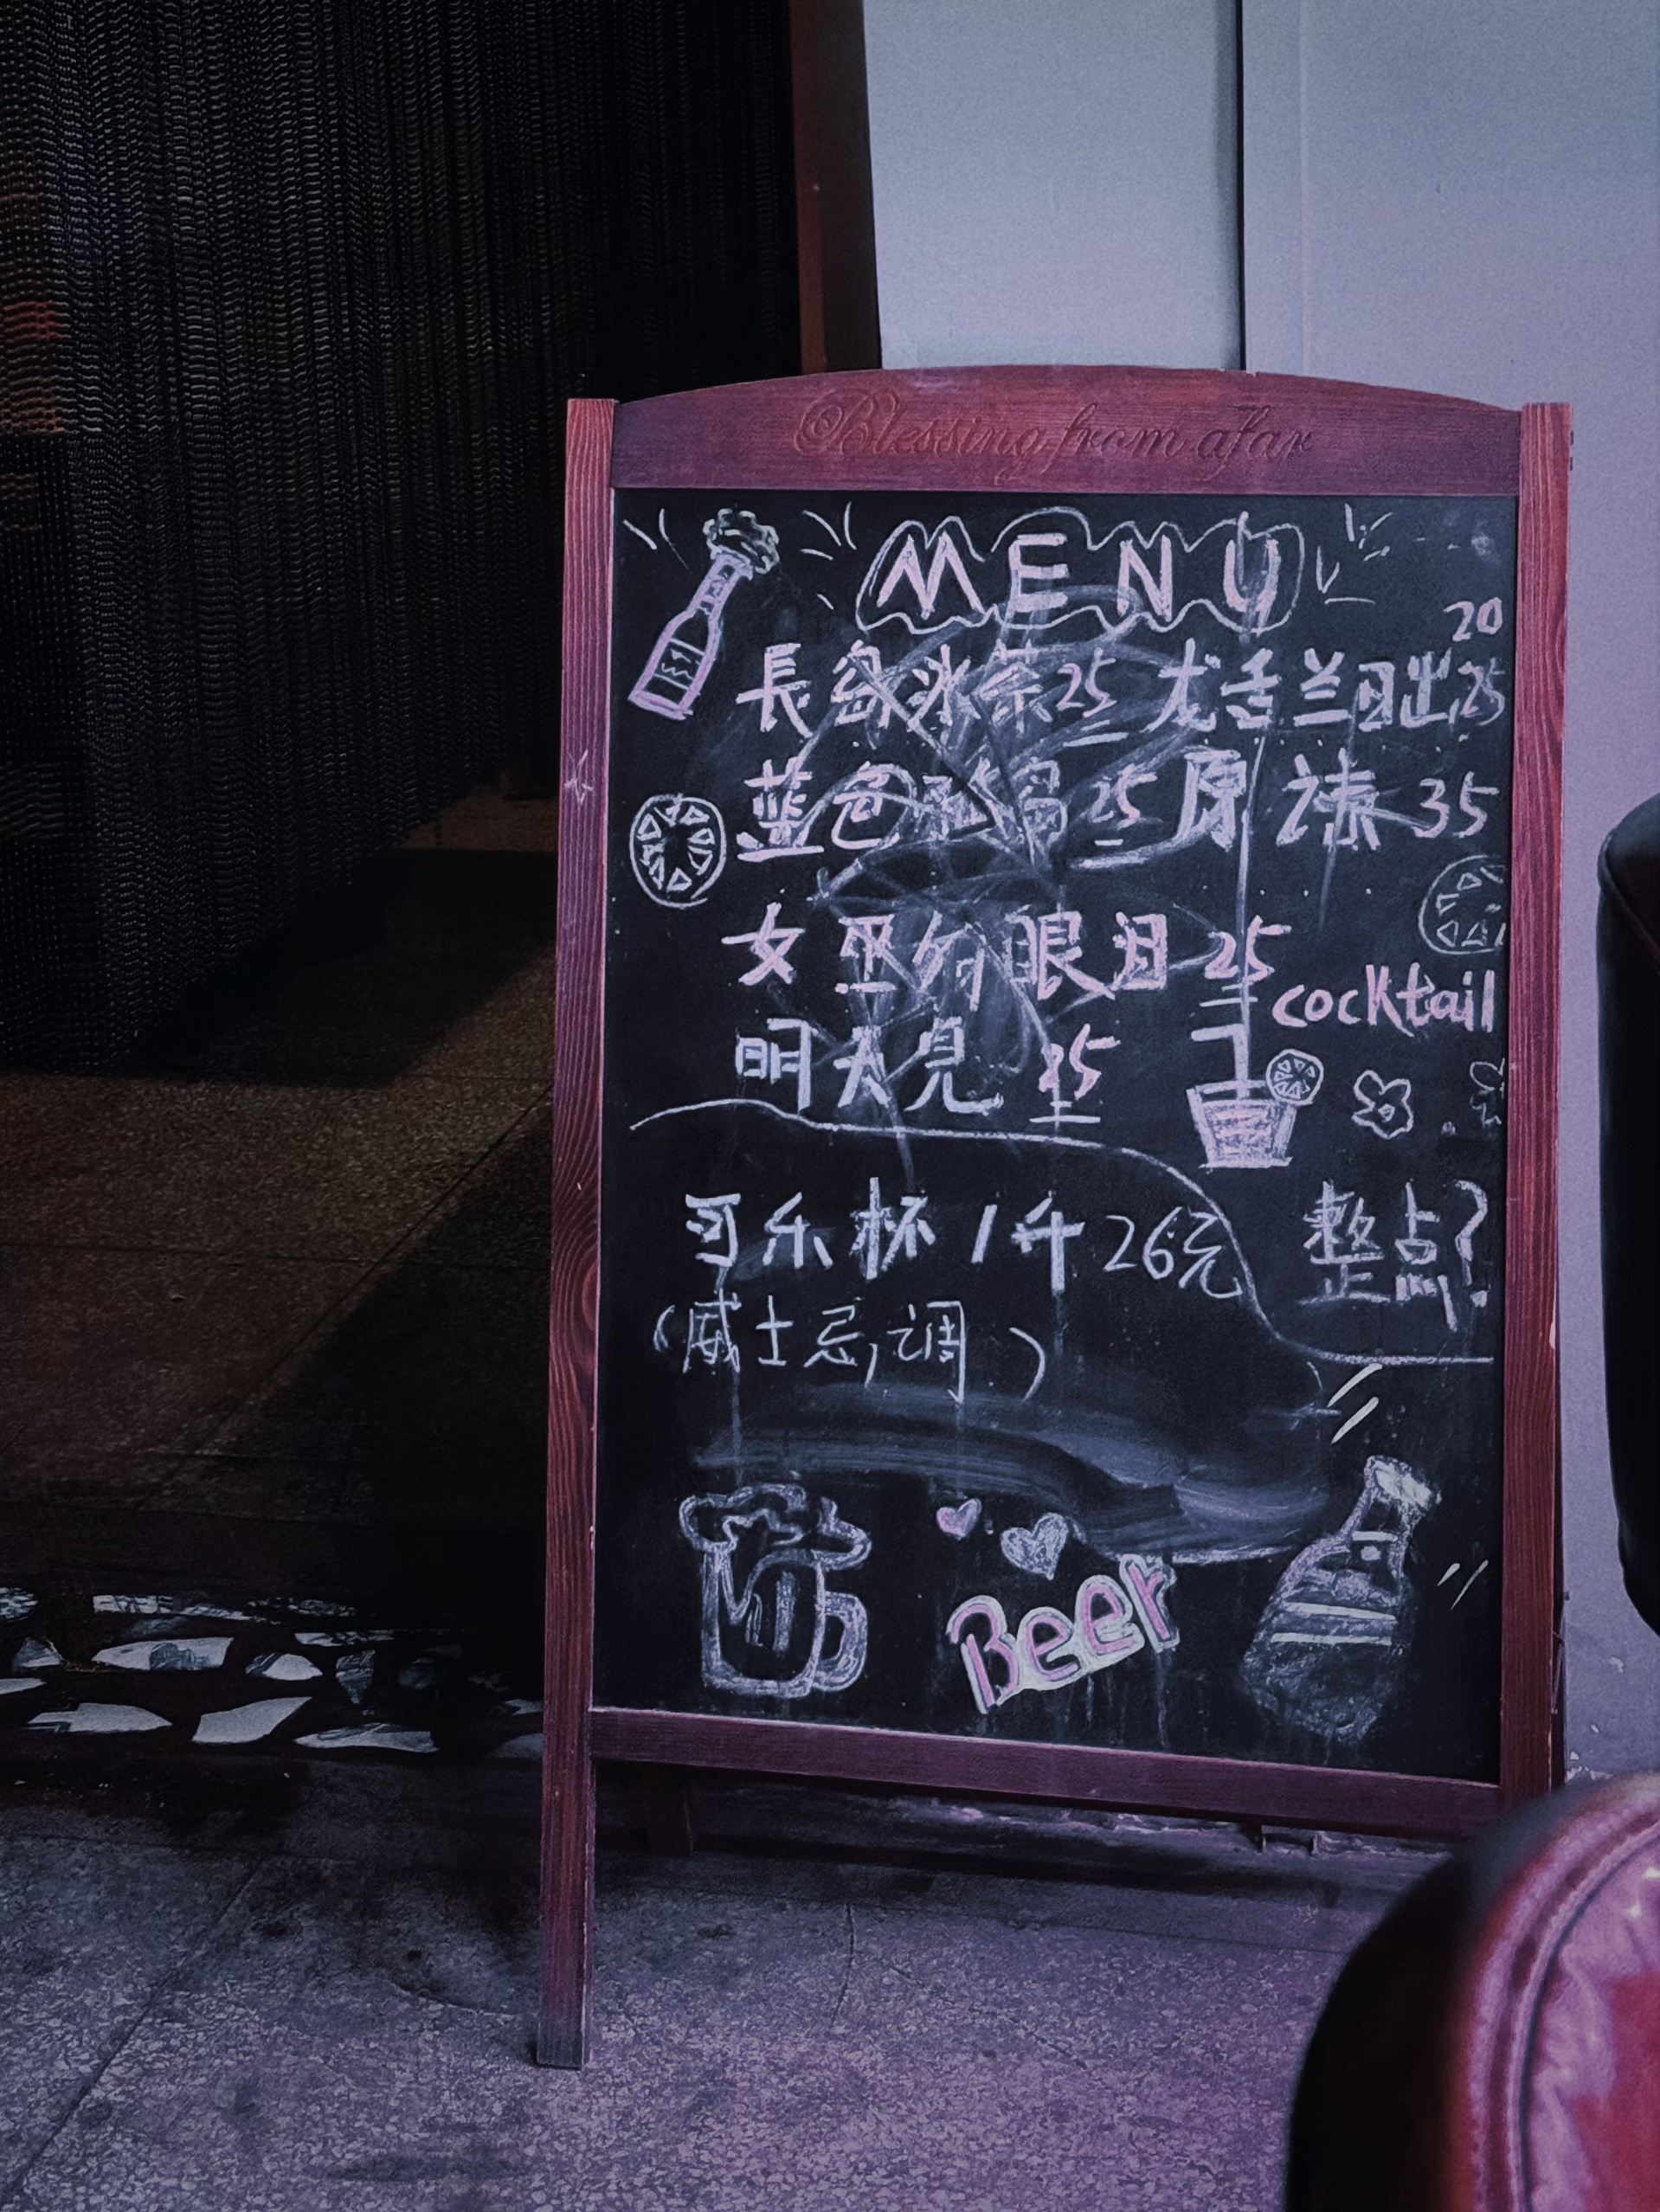 Blessing from afar
MENU
20
長岛冰茶25 龙舌兰日出25
蓝色 25 原 35
女巫的眼泪 25
cocktail
明天见 25
可乐杯 1升 26元
整点?
(威士忌,调)
Beer